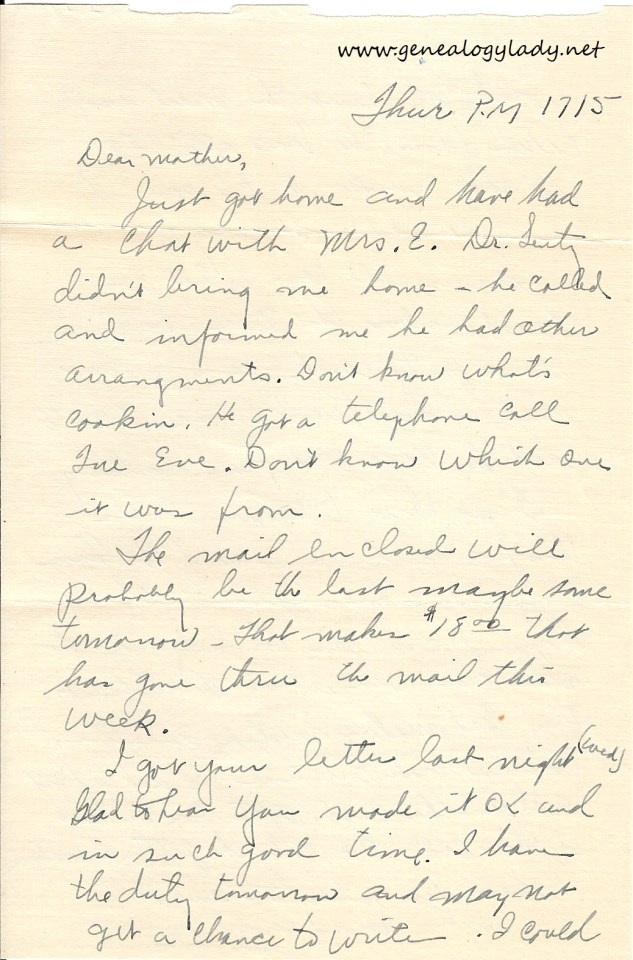 www.genealogylady.net
Thur P.M 1715
Dear mother,
Just got home and have had
a chat with Mrs. E. Dr.
didn't bring me home – he called
and informed me he had other
arrangments. Don't know what's
cookin. He got a telephone call
Tue Eve. Don't know which one
it was from.
The mail enclosed will
probably be th last maybe some
tomorrow – That makes $18.00 that
has gone thru th mail this
week.
I got your letter last night (wed)
Glad to hear you made it OK and
in such good time. I have
the duty tomorrow and may not
get a chance to write. I could